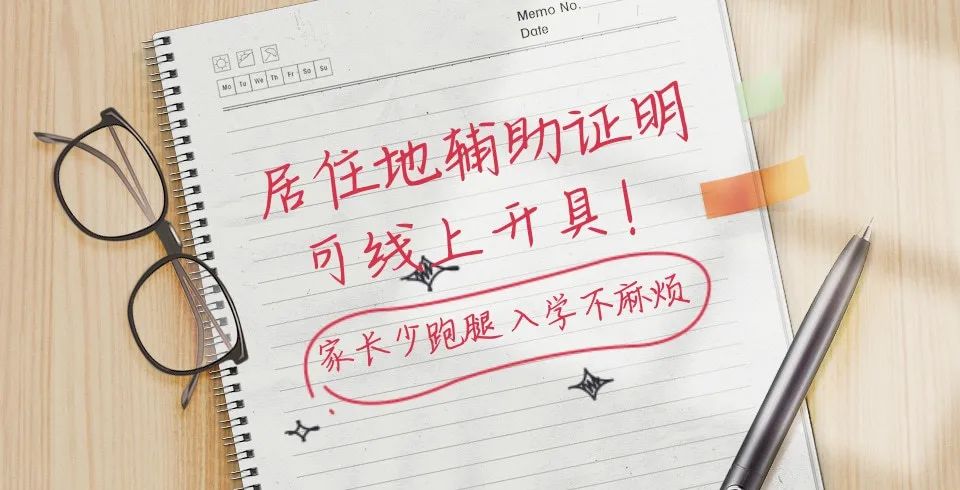 Memo No.
Date
Mo Tu We Th Fr Sa Su
居住地辅助证明
可线上开具！
家长少跑腿 入学不麻烦